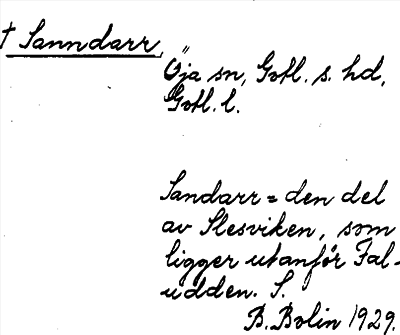 † Sanndarr
Öja sn, Gotl. s. hd,
Gotl. l.
Sandarr = den del
av Slesviken, som
ligger utanför Fal-
udden. S.
B. Bolin 1929.